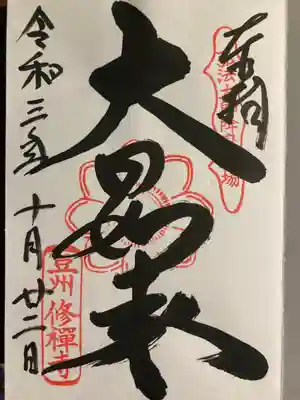 奉拜
大日如来
令和三年十月廿二日
豆州修禪寺